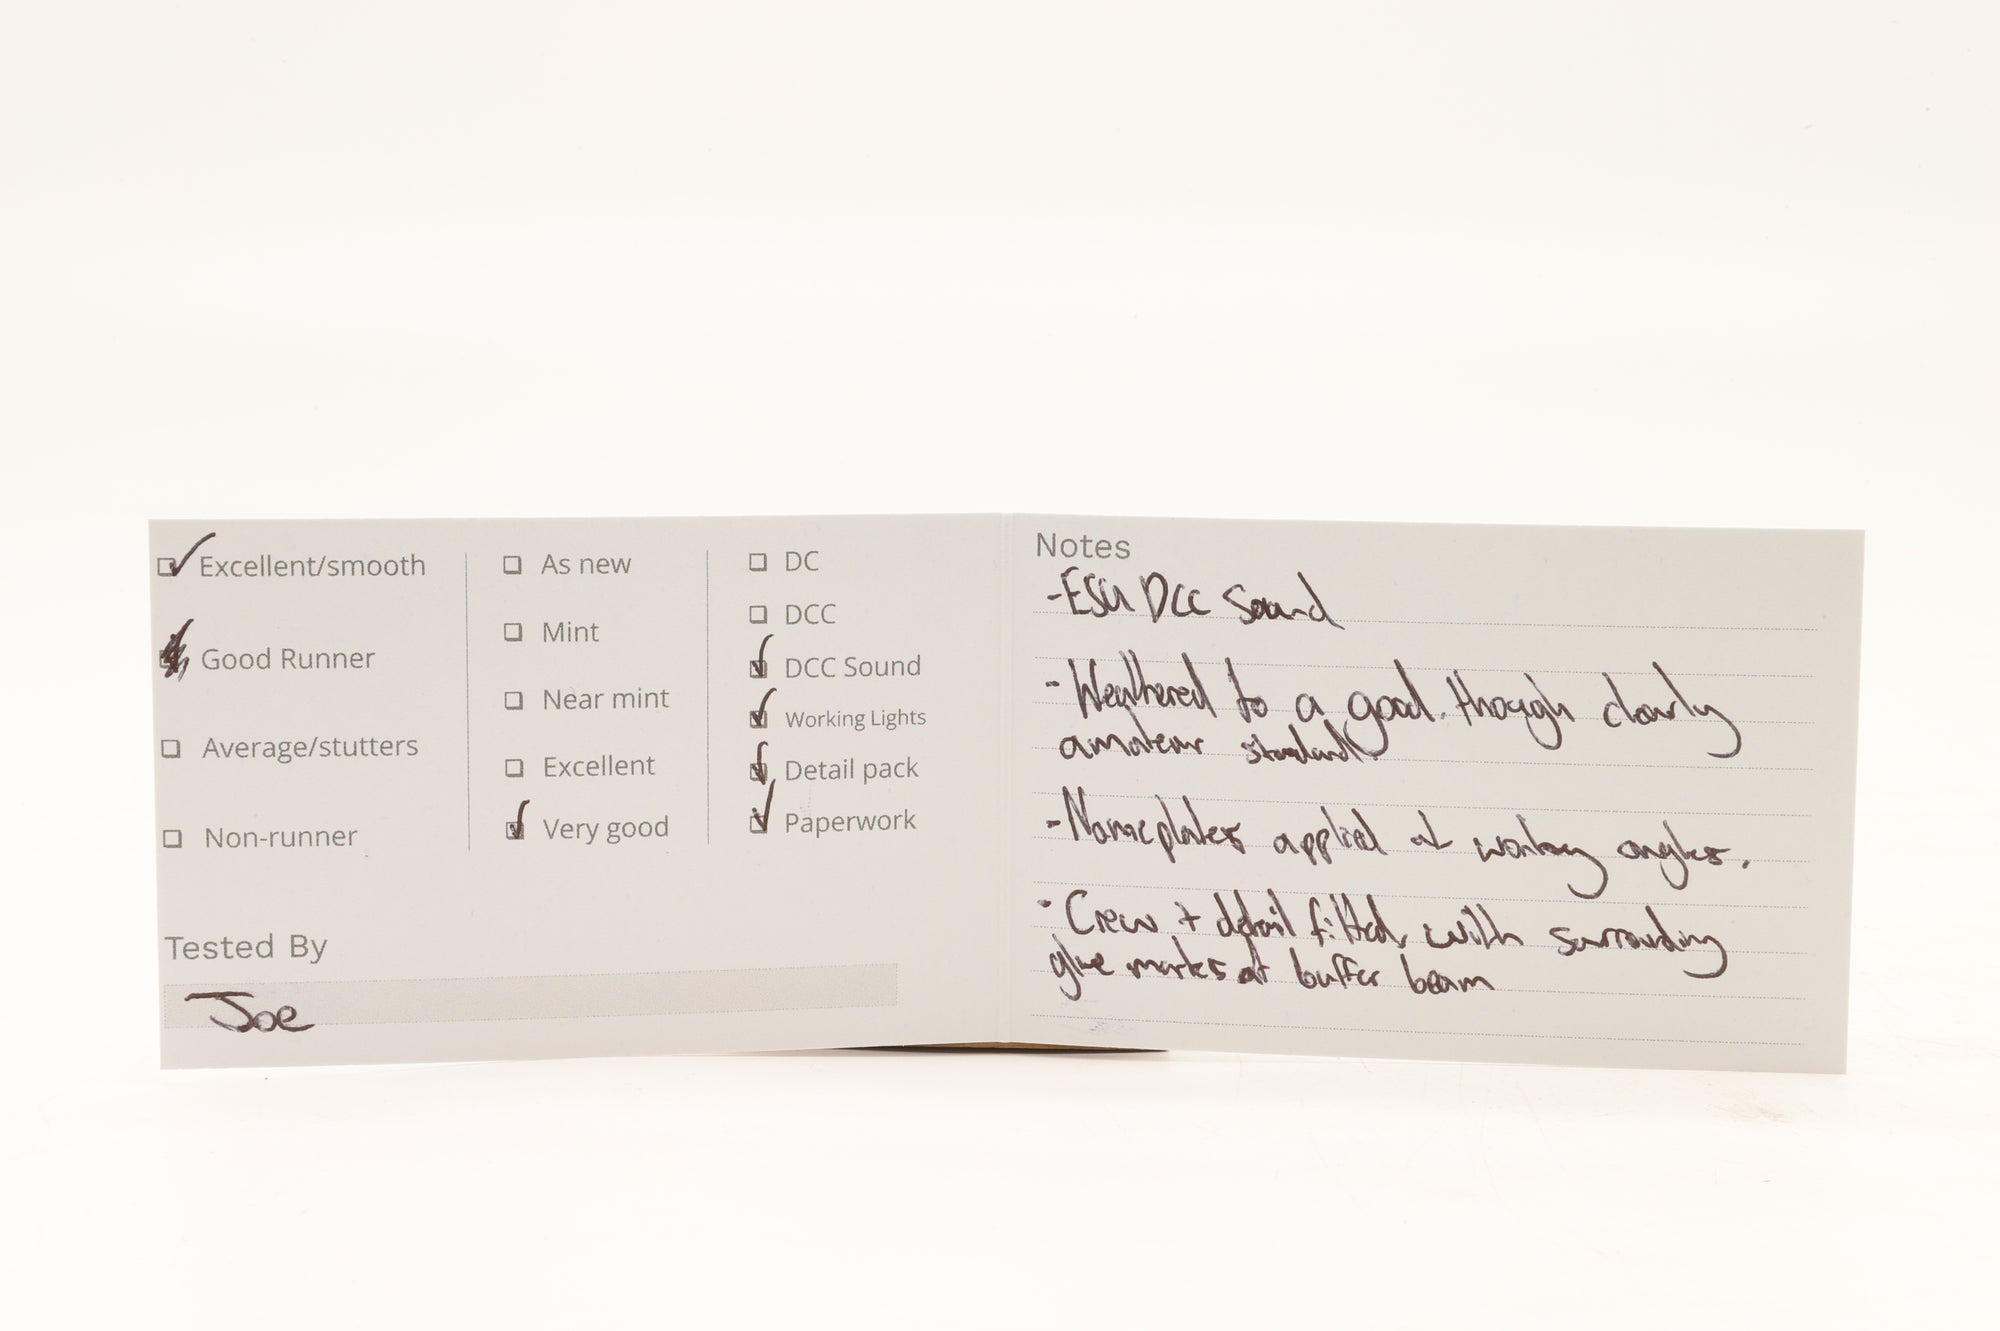 Excellent/smooth
Good Runner
Average/stutters
Non-runner
As new
Mint
Near mint
Excellent
Very good
DC
DCC
DCC Sound
Working Lights
Detail pack
Paperwork
Tested By
Joe
Notes
-ESU DCC Sound
-Weathered to a good, though clearly
amateur standard.
-Nameplates applied at angles.
-Crew + detail fitted, with surrounding
glue marks at buffer beam